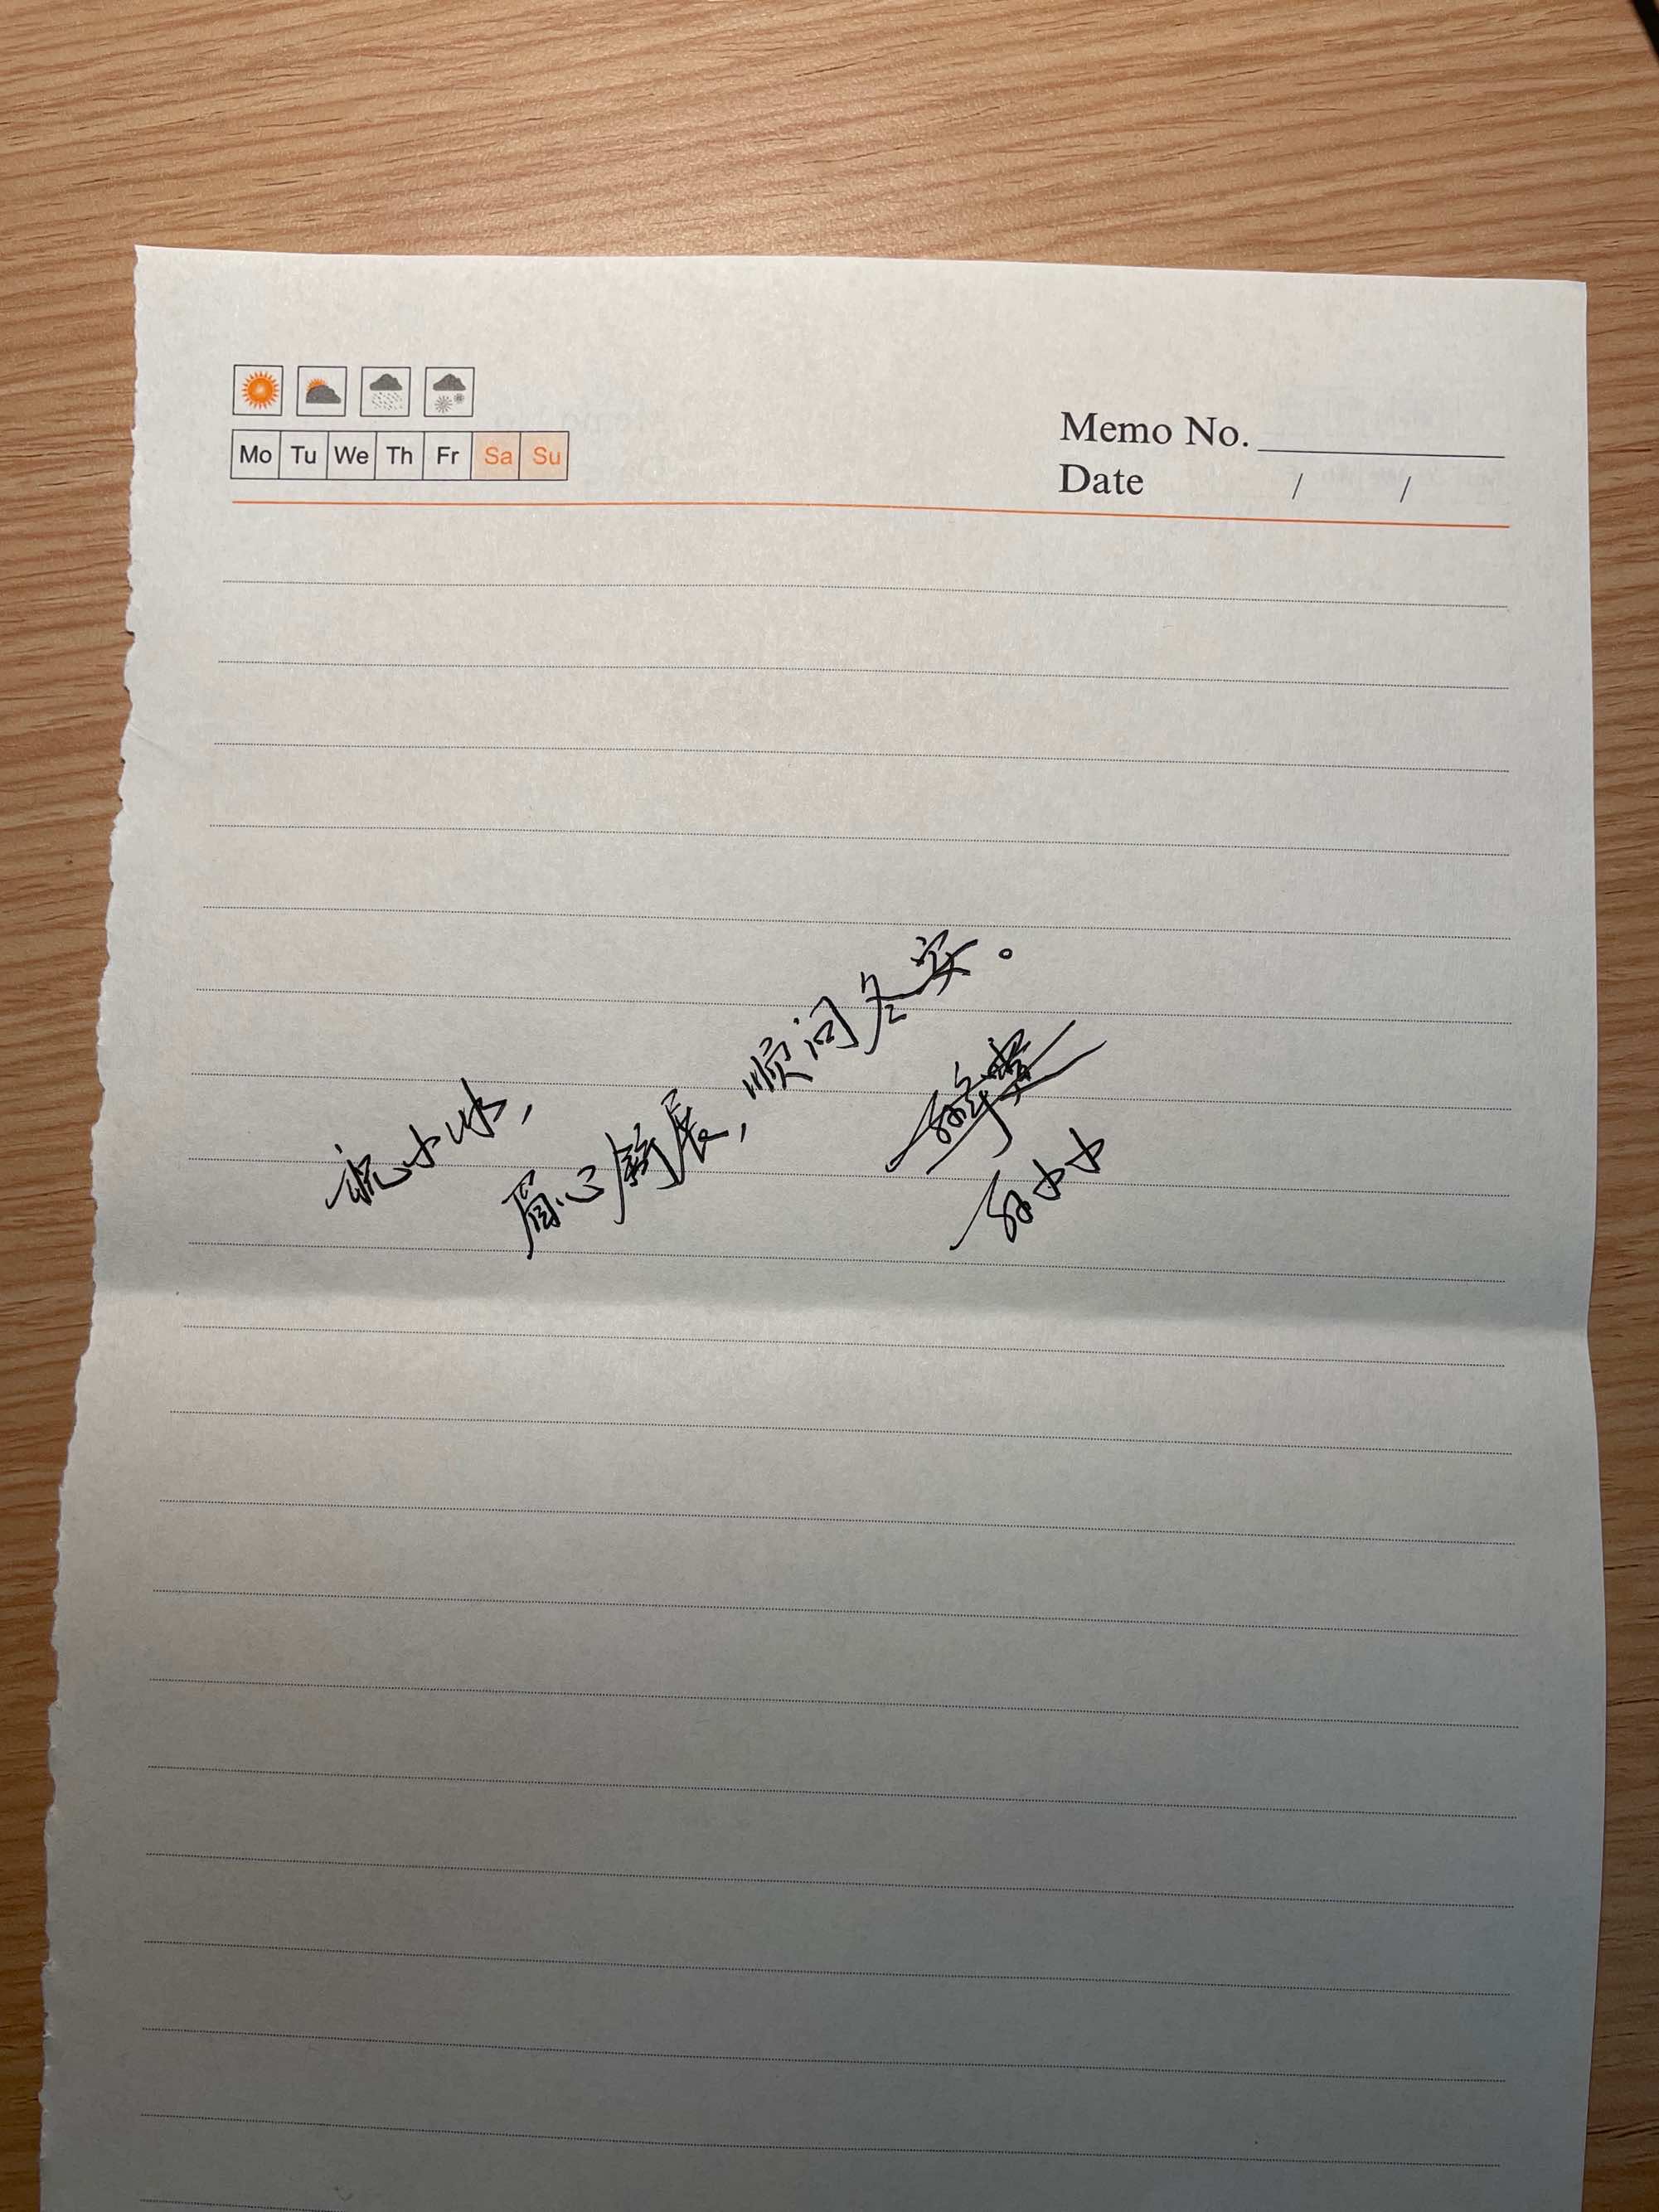 Mo Tu We Th Fr Sa Su
Memo No.
Date / /
祝小冰,
眉心舒展,顺问冬安。